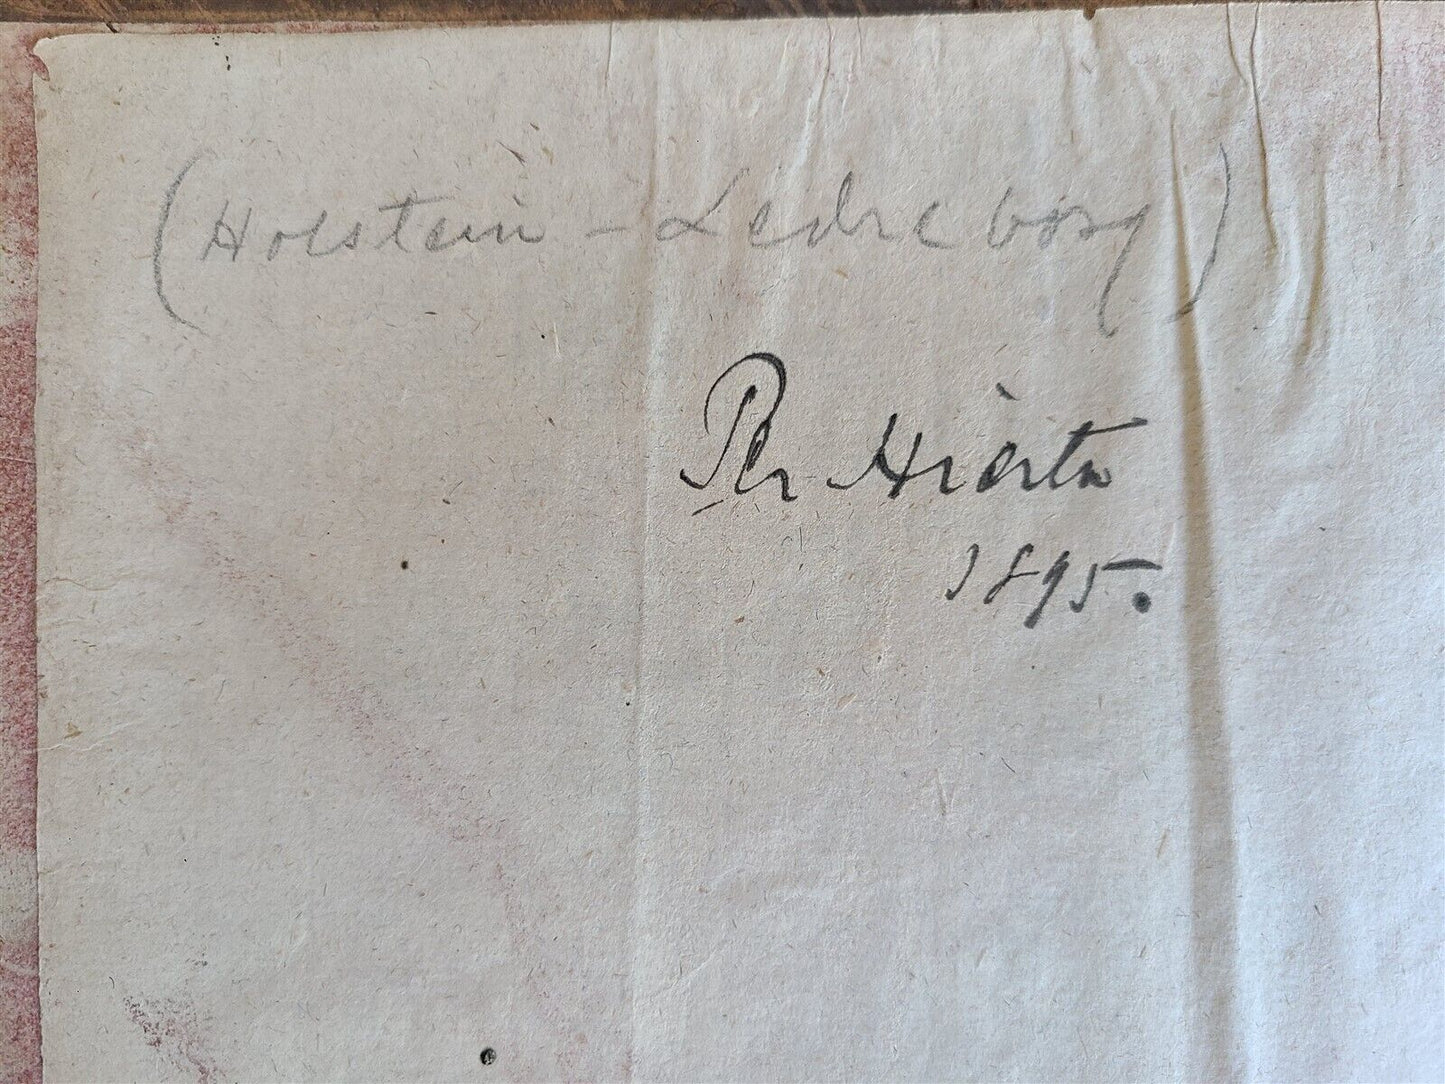 (Holstein - Ledreborg)
Per Hierta
1895.